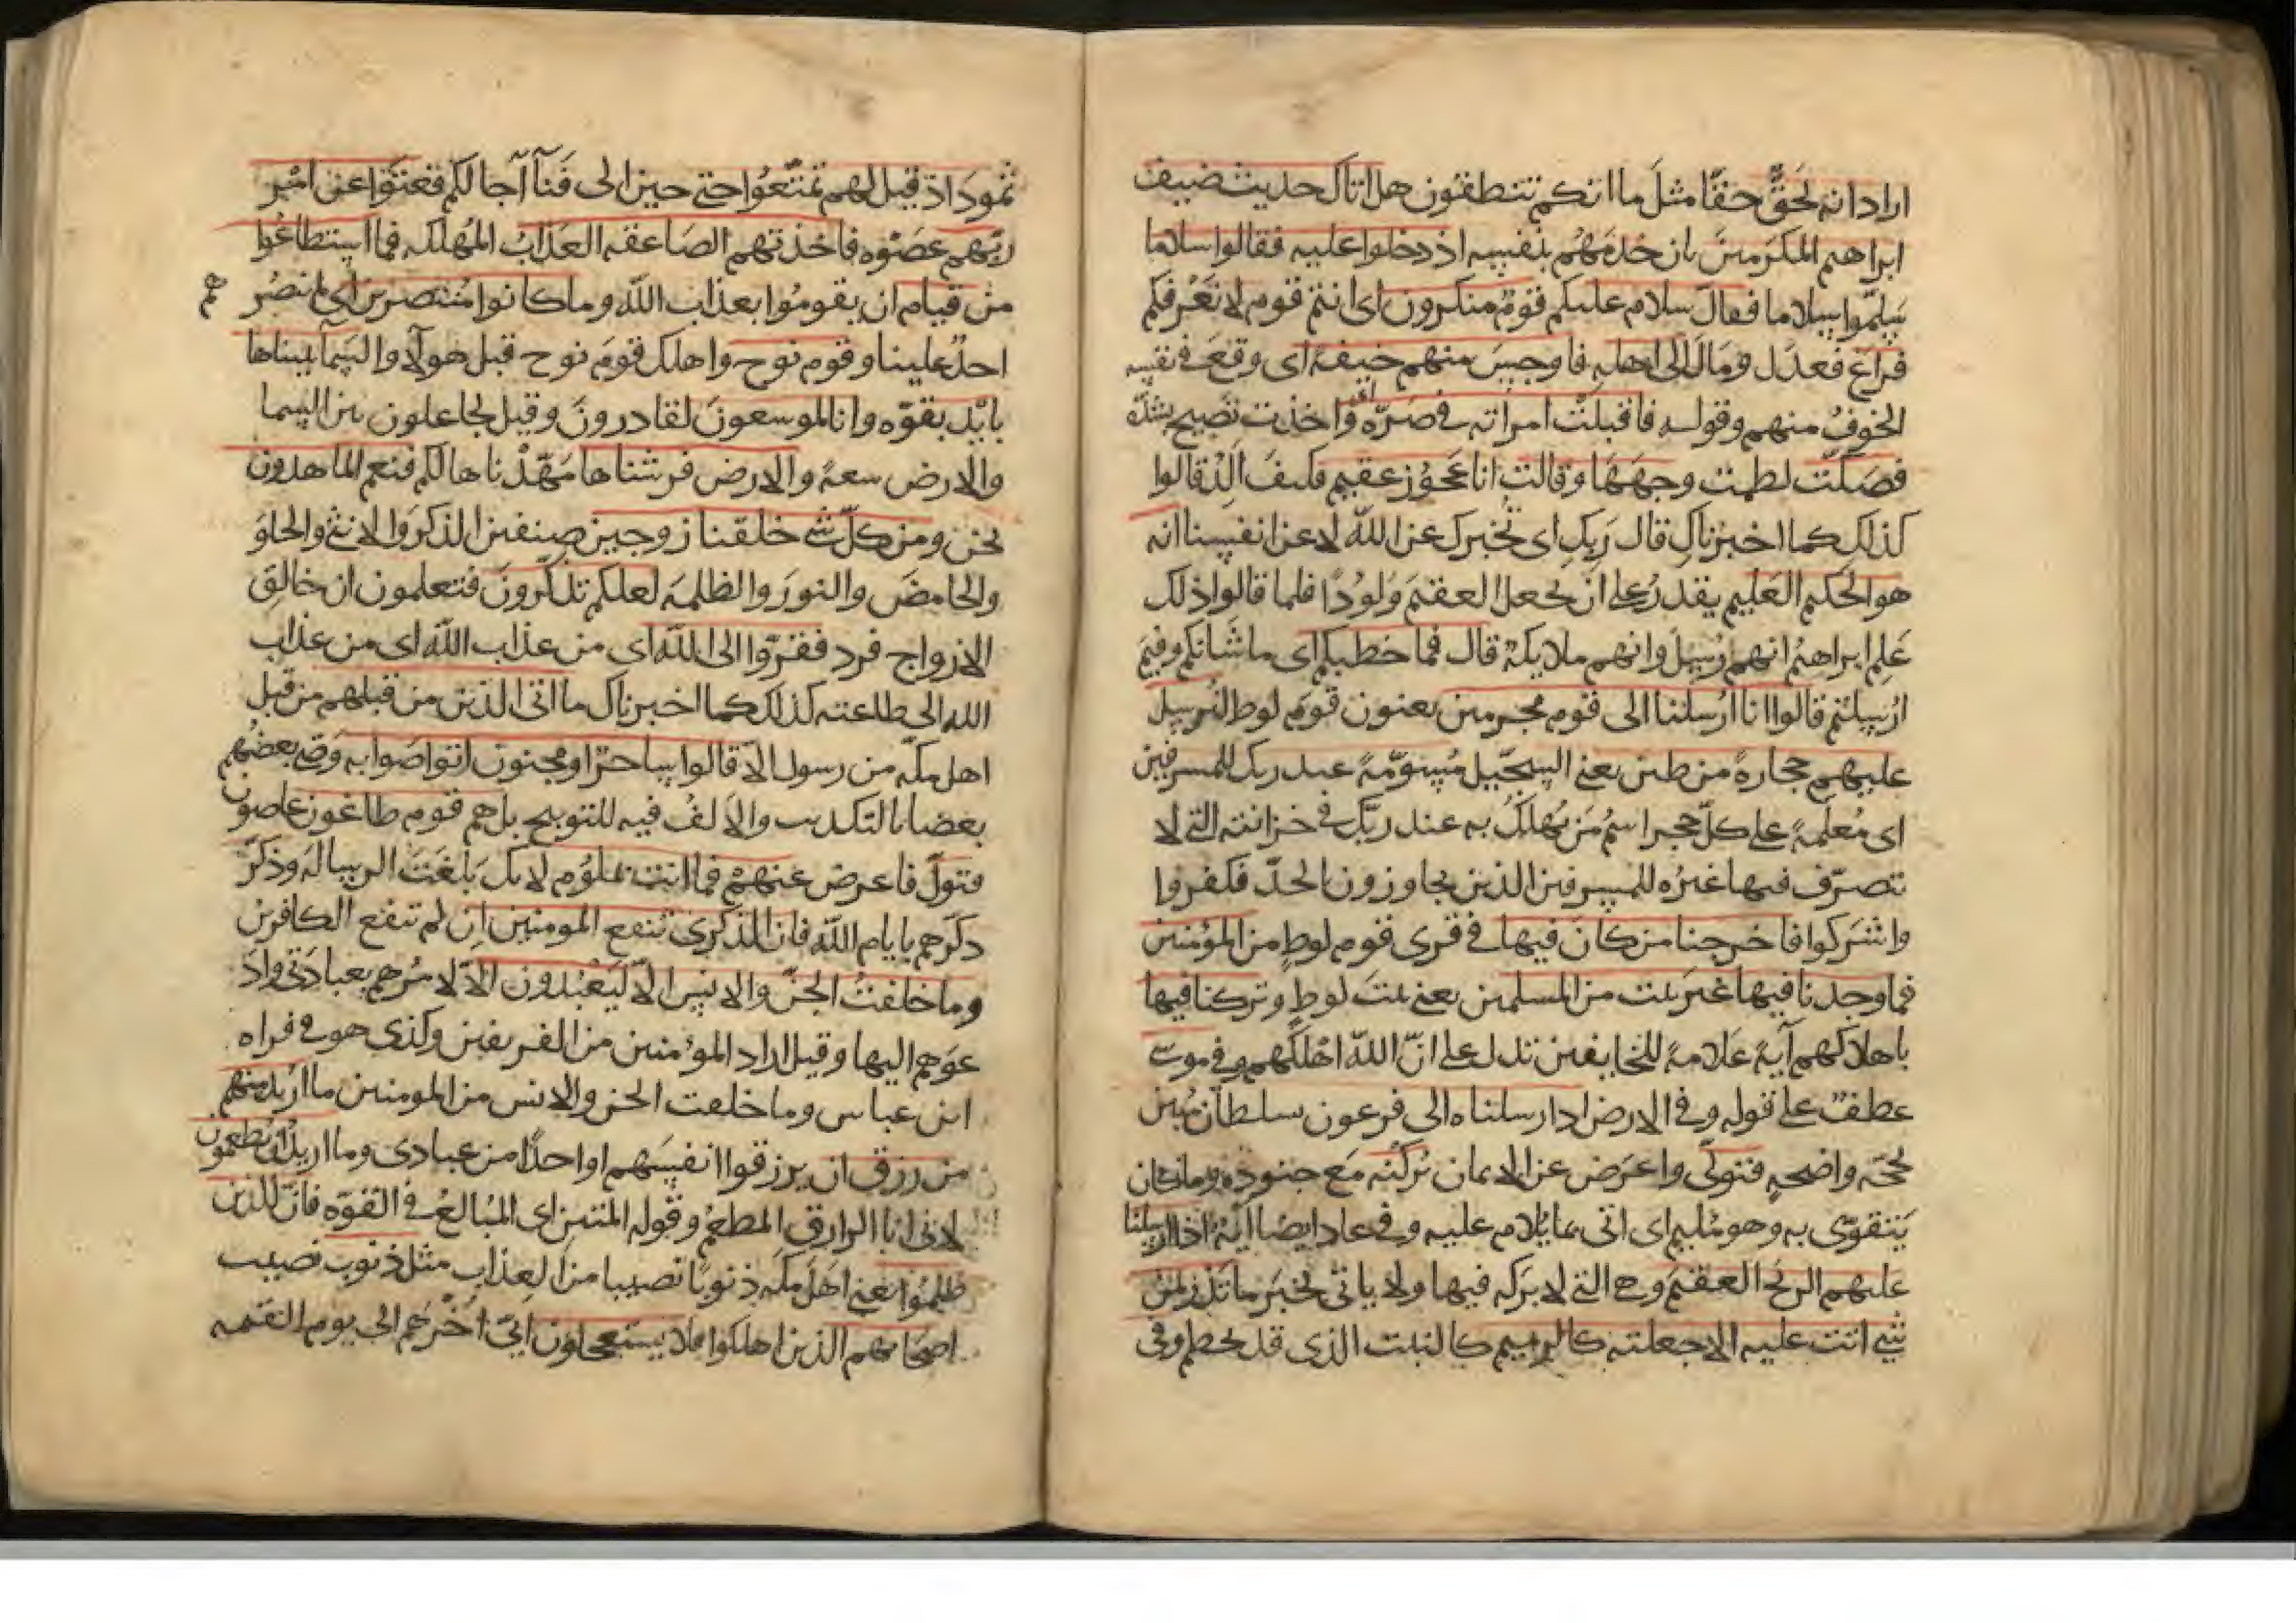 اراد انه لَحَقٌّ حقًّا مثلَ ما انكم تنطقون هل اتاك حديث ضيف
ابراهيم المكرَمينَ بان خدمَهُم بنفسه اذ دخلوا عليه فقالوا سلاما
سَلَّموا سلاما فقالَ سلام عليكم قومٌ منكرون اى انتم قوم لا نَعْرِفكم
فراغ فعدَل ومَال الى اهلِه فاوجسَ منهم خيفةً اى وقعَ فى نفسه
الخوفُ منهم وقوله فاقبلَتْ امراته فى صَرّه اى اخذت تصيح بشدّه
فصَكّت لطمت وجهَهَا وقالت انا عَجُوز عقيم فكيفَ اَلِدُ قالوا
كذلك كما اخبرناكِ قال رَبكِ اى نُخبرك عن الله لا عن انفسنا انه
هو الحكيم العَليم يقدرُ على ان يجعل العقيمَ وَلُودًا فلما قالوا ذلك
عَلِم ابراهيمُ انهم رُسلٌ وانهم ملايكة قال فما خطبكم اى ما شانكم وفيمَ
ارْسِلتم قالوا انا ارْسلنا الى قوم مجرمين يعنون قومَ لوط لنُرسِل
عليهم حجارةً من طين يعنى السِجّيل مُسَوّمةً عند ربك للمسرفين
اى مُعلَمةً على كلّ حجر اسمُ مَن يُهلَكُ به عند ربّك فى خزانته التى لا
تصرّف فيها غيرُه للمسرفين الذين يجاوزون الحدّ فكفروا
واشركوا فاخرجنا من كان فيها فى قرى قوم لوطٍ من المؤمنين
فما وجدنا فيها غيرَ بيت من المسلمين يعنى بيتَ لوطٍ وتركنا فيها
باهلاكهم آيةً عَلامةً للخايفين تدل على انّ الله اهْلَكَهم وفى موسى
عطفٌ على قوله وفى الارض اذ ارسلناه الى فرعون بسلطان مُبين
بحجّه واضحهٍ فتولّى واعرَض عن الايمان بُركْنه مَع جنوده وما كان
يَتقوّى به وهو مُليم اى اتى بما يُلام عليه وفى عاد ايضا آيةٌ اذ ارسلنا
عليهم الريحَ العقيمَ وهى التى لا بَركه فيها ولا ياتى بخير ما تَذَر من
شى اتت عليه الا جعلته كالرميم كالنبت الذى قد تحطم وفى
ثمودَ اذ قيل لهم تمتّعُوا حتى حين الى فَنَآ آجالكم فعتَوْا عن امْرِ
ربّهم عصَوْه فاخذتهم الصَاعقه العَذابُ المُهلك فما استطاعُوا
من قيام ان يقومُوا بعذاب الله وما كانوا مُنتصرين اى لم ينصُرهم
احدٌ علينا وقوم نوح واهلك قومَ نوح قبل هولآ والسمآ بنيناها
بايْد بقوّه وانا لموسعونَ لقادرونَ وقيل لجاعلون بين السما
والارض سعةً والارض فرشناها مَهّدْناها لكم فنعم الماهدون
نحن ومن كلّ شى خلقنا زوجين صِنفين الذكرَ والانثى والحلوَ
والحامضَ والنورَ والظلمهَ لعلكم تذكّرونَ فتعلمون ان خالِق
الازواج فرد ففرّوا الى الله اى من عذاب الله اى من عذاب
الله الى طاعته كذلك كما اخبرناك ما اتى الذين من قبلهم من قبل
اهل مكّه من رسول الاّ قالوا ساحرٌ او مجنون اتواصَوا به وَصّى بعضُهم
بعضا بالتكذيب والالفُ فيه للتوبيخ بل هم قوم طاغون عاصون
فتولّ فاعرض عنهم فما انت بملُوم لانك بَلّغتَ الرساله وذكّر
ذكّرهم بايام الله فان الذكرى تنفع المومنين ان لم تنفع الكافرين
وما خلقتُ الجنّ والانس الاّ ليَعْبُدون الاّ لامُرهم بعبادتى واد
عوَهم اليها وقيل اراد المؤمنين من الفريقين وكذى هو فى قراه
ابن عباس وما خلقت الجن والانس من المومنين ما اُريد منهم
من رزق ان يرزقوا انفسَهم او احدًا من عبادى وما اريد ان يطعمون
لانى انا الرازق المطعِمُ وقوله المتين اى المُبالِغُ فى القوّه فان للذين
ظلمُوا يَعنى اهَلَ مكه ذنوبًا نصيبا من العذاب مثل ذنوب نصيب
اصحابهم الذين اهلكوا فلا يستعجلون انى اُخّرهم الى يوم القيمه